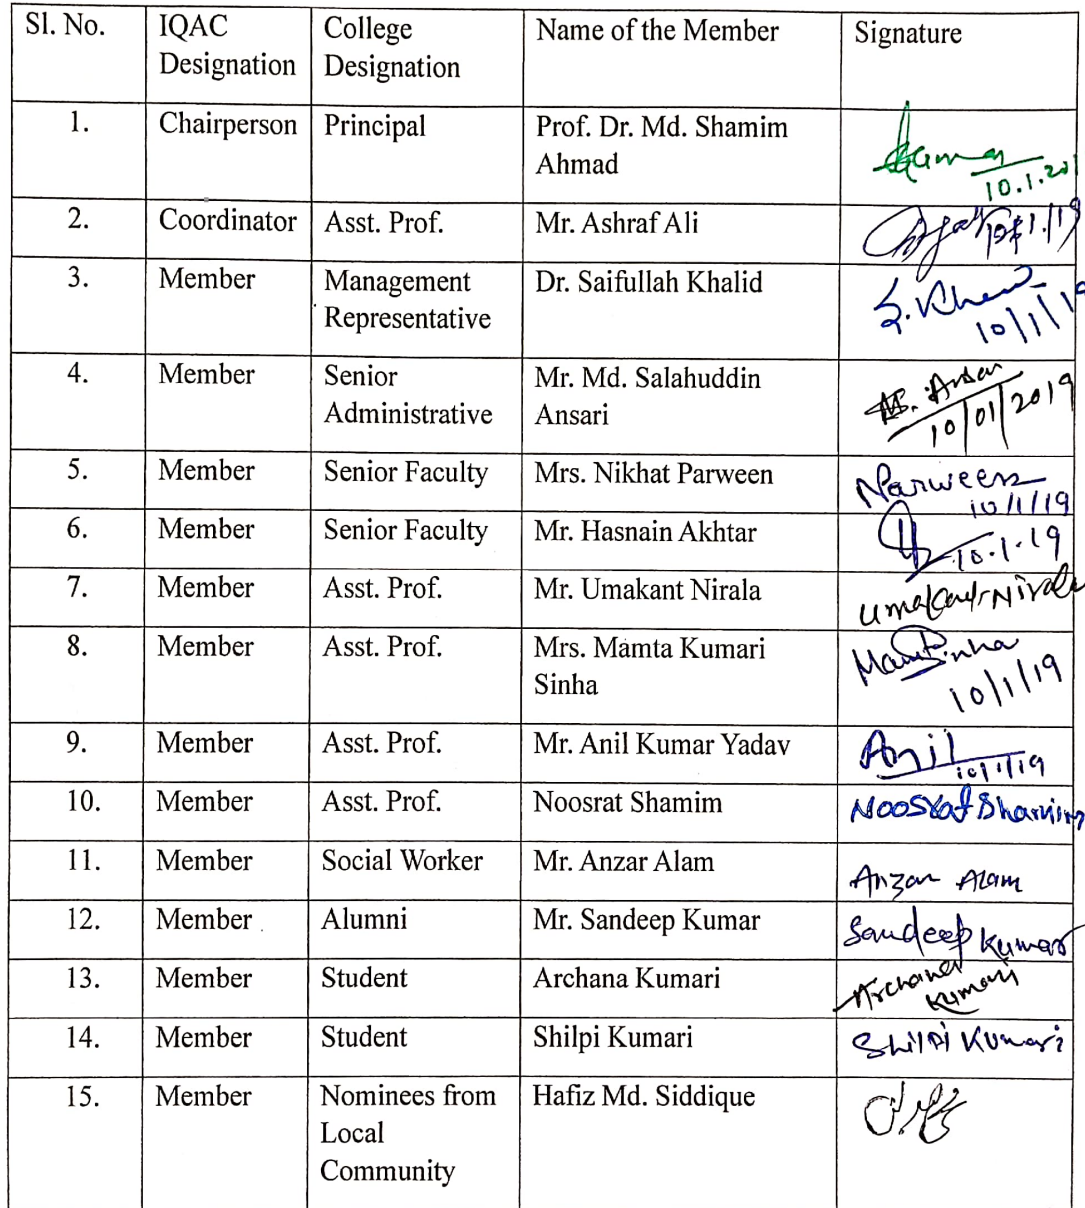 Sl. No. IQAC College Name of the Member Signature
Designation Designation
1. Chairperson Principal Prof. Dr. Md. Shamim
Ahmad
10.1.201
2. Coordinator Asst. Prof. Mr. Ashraf Ali
3. Member Management Dr. Saifullah Khalid
Representative
10/1/19
4. Member Senior Mr. Md. Salahuddin
Administrative Ansari
10/01/2019
5. Member Senior Faculty Mrs. Nikhat Parween Parween
10/1/19
6. Member Senior Faculty Mr. Hasnain Akhtar
10.1.19
7. Member Asst. Prof. Mr. Umakant Nirala Umakant Nirala
8. Member Asst. Prof. Mrs. Mamta Kumari
Sinha
10/1/19
9. Member Asst. Prof. Mr. Anil Kumar Yadav Anil
10/1/19
10. Member Asst. Prof. Noosrat Shamim Noosrat Shamim
11. Member Social Worker Mr. Anzar Alam Anzar Alam
12. Member Alumni Mr. Sandeep Kumar Sandeep Kumar
13. Member Student Archana Kumari Archana
Kumari
14. Member Student Shilpi Kumari Shilpi Kumari
15. Member Nominees from Hafiz Md. Siddique
Local
Community